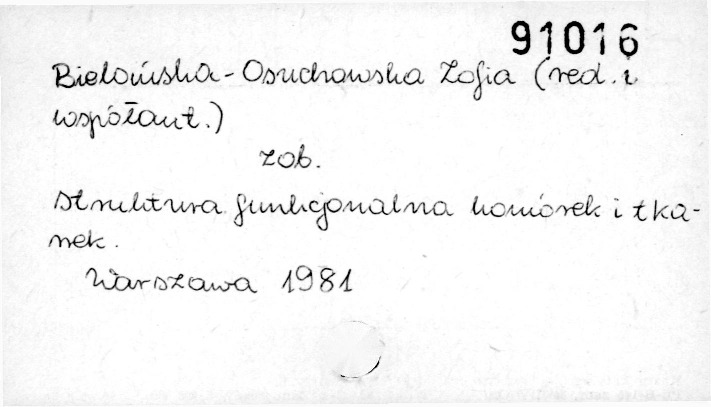 91016
Bielańska-Osuchowska Zofia (red. i
współaut.)
zob.
Struktura funkcjonalna komórek i tka-
nek.
Warszawa 1981